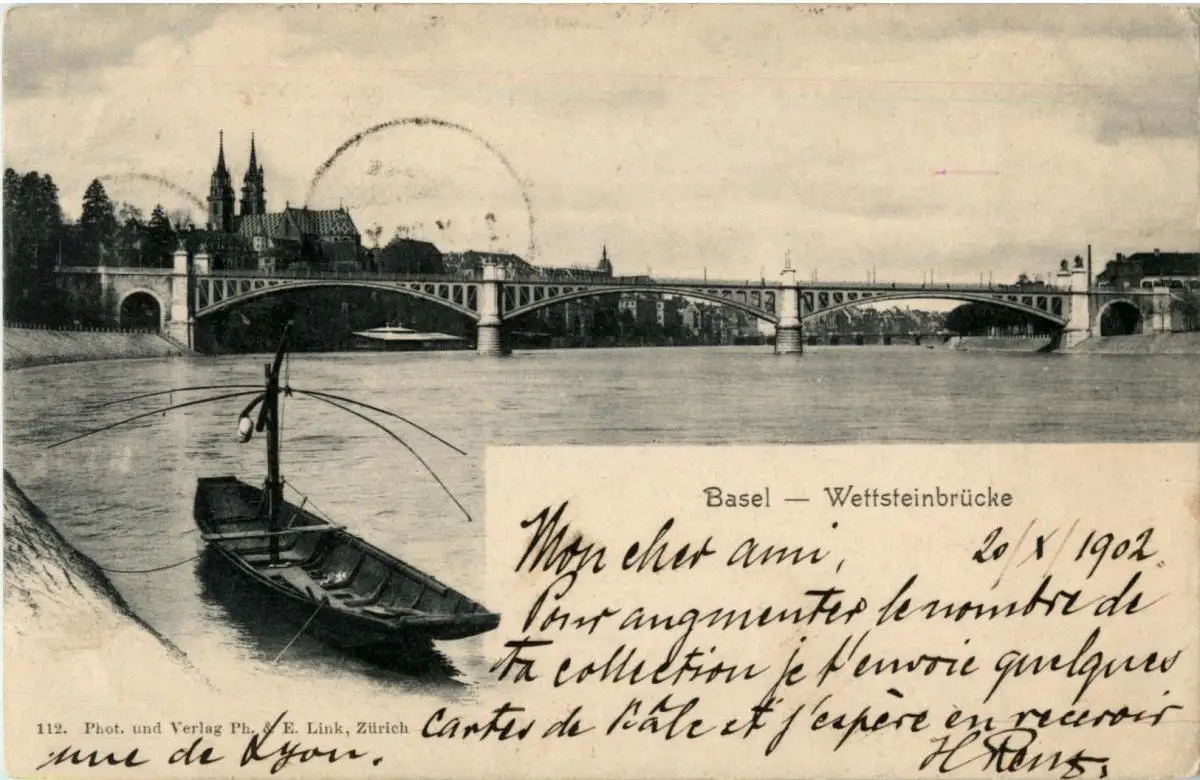 Basel — Wettsteinbrücke
Mon cher ami, 20/X/1902.
Pour augmenter le nombre de
ta collection je t'envoie quelques
112. Phot. und Verlag Ph. & E. Link, Zürich
cartes de Bâle et j'espère en recevoir
une de Lyon.